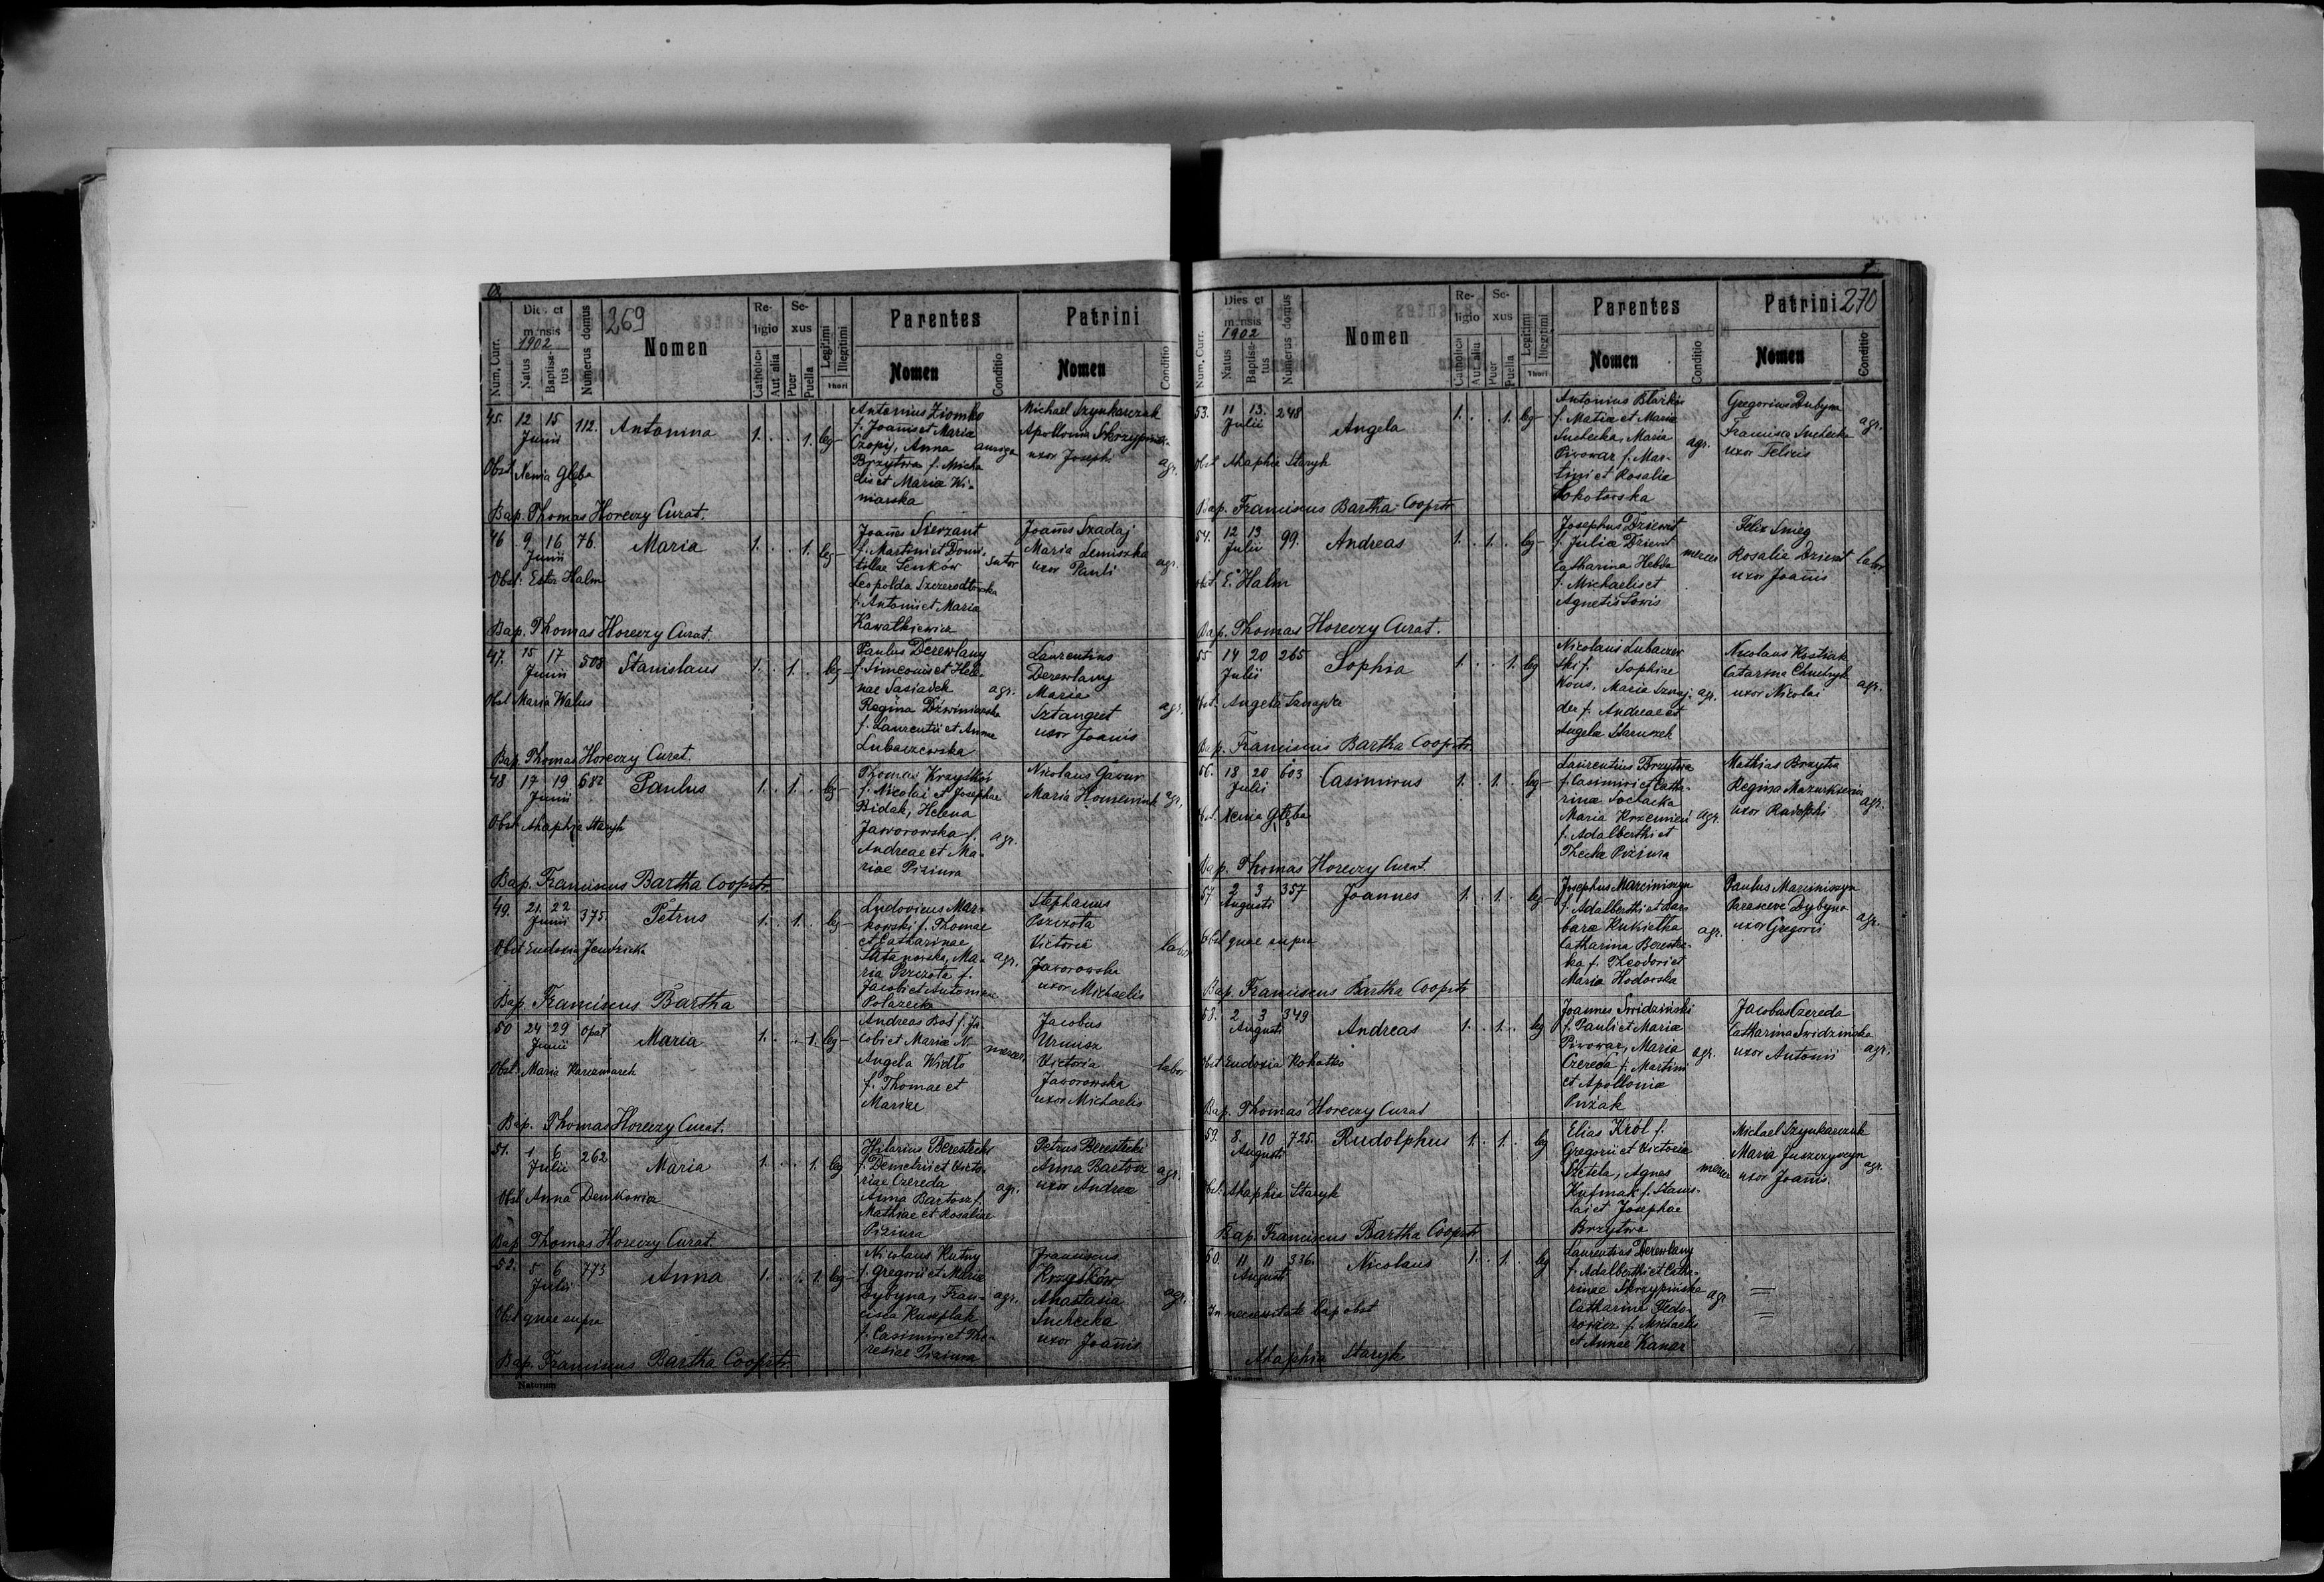 269
Dies et mensis 1902
Num. Curr.
Natus
Baptisatus
Numerus domus
Nomen
Religio
Catholica
Aut alia
Sexus
Puer
Puella
Legitimi
Illegitimi
Thori
Parentes
Nomen
Conditio
Patrini
Nomen
Conditio
45. 12 15 112. Antonina 1. 1. leg-
Junii
Antonius Ziomko
f. Joannis et Maria
Czopij, Anna
Brzytwa f. Micha
lis et Maria Wi-
niarska
Michael Szynkarczuk
Apollonia
uxor Josephi
agr.
Obst. Xenia Gleba
Bap. Thomas Horeczy Curat.
46 9 16 76. Maria 1. 1. leg-
Junii
Joannes Sierzant
f. Martini et Domi-
tillae Senkow
sutor
Leopolda
f. Antonii et Maria
Joannes Szadaj
Maria Lemiszka
uxor Pauli
agr.
Obst: Ester Halm
Bap. Thomas Horeczy Curat.
47. 15 17 Stanislaus 1. 1. leg-
Junii
Paulus Derewlany
f. Simeonis et Hele-
nae Sasiadek
agr.
Regina
f. Laurentii et Anna
Lubaczewska
Laurentius
Derewlany
Maria
Sztangret
uxor Joannis
agr.
Obst Maria Walus
Bap. Thomas Horeczy Curat.
48 17 19 682 Paulus 1. 1. leg-
Junii
Thomas Krzyśków
f. Nicolai et Josephae
Bidak, Helena
Jaworowska f.
agr.
Andreae et Ma-
riae Piziura
Nicolaus Gawur
Maria Homeniuk
agr.
Obst. Ahaphia Staryk
Bap. Franciscus Bartha Cooprtr.
49. 21. 22 375 Petrus 1. 1. leg-
Junii
Ludovicus Mar-
kowski f. Thomae
et Catharinae
Ma-
agr.
ria Pszczota f.
Jacobi et Antonina
Stephanus
Pszczota
Victoria
Jaworowska
uxor Michaelis
labor
Obst Eudoxia
Bap. Franciscus Bartha
50 24 29 Maria 1. 1. leg-
Junii
Andreas Boś f. Ja
cobi et Maria N-
Angela Widło
f. Thomae et
Mariae
Jacobus
Victoria
Jaworowska
uxor Michaelis
labor
Obst. Maria Karczmarek
Bap. Thomas Horeczy Curat.
51. 1 6 262 Maria 1. 1. leg
Julii
Hilarius Berestecki
f. Demetrii et Victo-
riae Czereda
agr.
Anna Bartosz f.
Mathiae et Rosaliae
Piziura
Petrus Berestecki
Anna Bartosz
uxor Andrea
agr.
Obst Anna Demkowicz
Bap Thomas Horeczy Curat.
52. 5 6 773 Anna 1. 1. leg-
Julii
Nicolaus Kutny
f. Gregorii et Maria
Dybyna, Fran-
agr.
cisca
f. Casimiri et The-
resiae Piziura
Franciscus
Krzyśków
Anastasia
Suchecka
uxor Joannis
agr.
Obst quae supra
Bap. Franciscus Bartha Cooprtr.
Naturum
270
Dies et mensis 1902
Num. Curr.
Natus
Baptisatus
Numerus domus
Nomen
Religio
Catholica
Aut alia
Sexus
Puer
Puella
Legitimi
Illegitimi
Thori
Parentes
Nomen
Conditio
Patrini
Nomen
Conditio
53. 11 13. 248 Angela 1. 1. leg-
Julii
Antonius
f. Matia et Maria
Suchecka, Maria
agr.
Piwowar f. Mar-
tini et Rosalia
Gregorius Dubyna
Francisca Suchecka
uxor Felixis
agr.
Obst Ahaphia Staryk
Bap. Franciscus Bartha Cooprtr
54. 12 13 99. Andreas 1. 1. leg-
Julii
Josephus
f. Julia
Catharina Hebda
f. Michaelis et
Agnetis
Felix
Rosalia
uxor Joannis
labor
Obst. E. Halm
Bap. Thomas Horeczy Curat.
55 14 20 265 Sophia 1. 1. leg
Julii
Nicolaus Lubaczew
ski f. Sophiae
Kous, Maria Sznaj-
agr.
der f. Andreae et
Angela Staruszek
Nicolaus
Catarina
uxor Nicolai
agr.
Obst. Angela
Bap. Franciscus Bartha Cooprtr.
56. 18 20 603 Casimirus 1. 1. leg-
Julii
Laurentius Brzytwa
f. Casimiri et Catha-
rinae Sochacka
Maria Krzemień
agr.
f. Adalberthi et
Thecla Piziura
Mathias Brzytwa
Regina Mazurkiewicz
uxor Radolphi
agr.
Obst. Xenia Gleba
Bap. Thomas Horeczy Curat.
57. 2 3 357 Joannes 1. 1. leg-
Augusti
Josephus Marciniszyn
f. Adalberthi et Bar-
bara Kukiełka
agr.
Catharina Berestec-
ka f. Theodori et
Maria Hodowska
Paulus Marciniszyn
Parasceve Dybyna
uxor Gregorii
agr.
Obst quae supra
Bap. Franciscus Bartha Cooprtr
58. 2 3 349 Andreas 1. 1. leg
Augusti
Joannes Swidziński
f. Pauli et Maria
Piwowar, Maria
agr.
Czereda f. Martini
et Apollonia
Puzak
Jacobus Czereda
Catharina Swidzińska
uxor Antonii
agr.
Obst Eudoxia
Bap. Thomas Horeczy Curat
59. 8. 10 725. Rudolphus 1. 1. leg
Augusti
Elias Król f.
Gregorii et Victoria
Szetela, Agnes
f. Stanis-
lai et Josephae
Brzytwa
Michael Szynkarczuk
Maria Juszczyszyn
uxor Joannis
agr.
Obst. Ahaphia Staryk
Bap. Franciscus Bartha Cooprtr
60. 11 11 336. Nicolaus 1. 1. leg
Augusti
Laurentius Derewlany
f. Adalberthi et Catha-
rinae Skrzypińska
agr
Catharina Fedo-
rowicz f. Michaelis
et Annae Kanar
In necessitate bap obst
Ahaphia Staryk